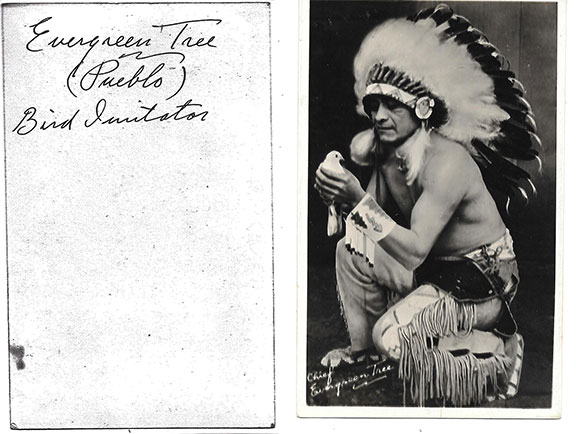 Evergreen Tree
(Pueblo)
Bird Imitator
Chief
Evergreen Tree